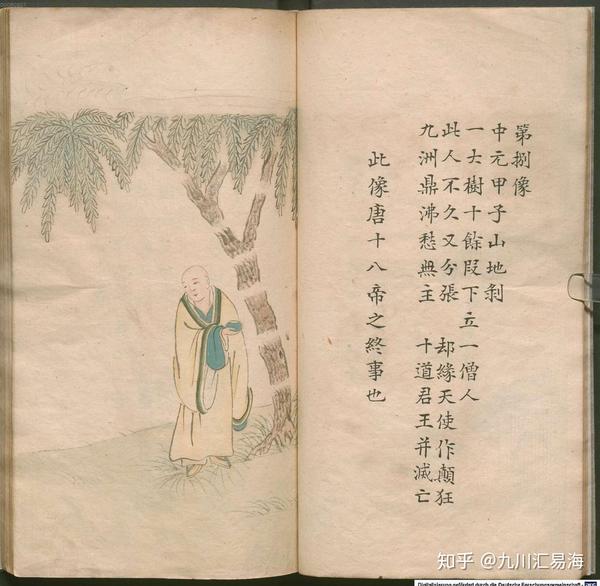 第捌像
中元甲子山地剝
一大樹十餘段下立一僧人
此人不久又分張　却緣天使作顛狂
九洲鼎沸愁無主　十道君王并滅亡
此像唐十八帝之終事也
知乎 @九川汇易海
Digitalisierung gefördert durch die Deutsche Forschungsgemeinschaft